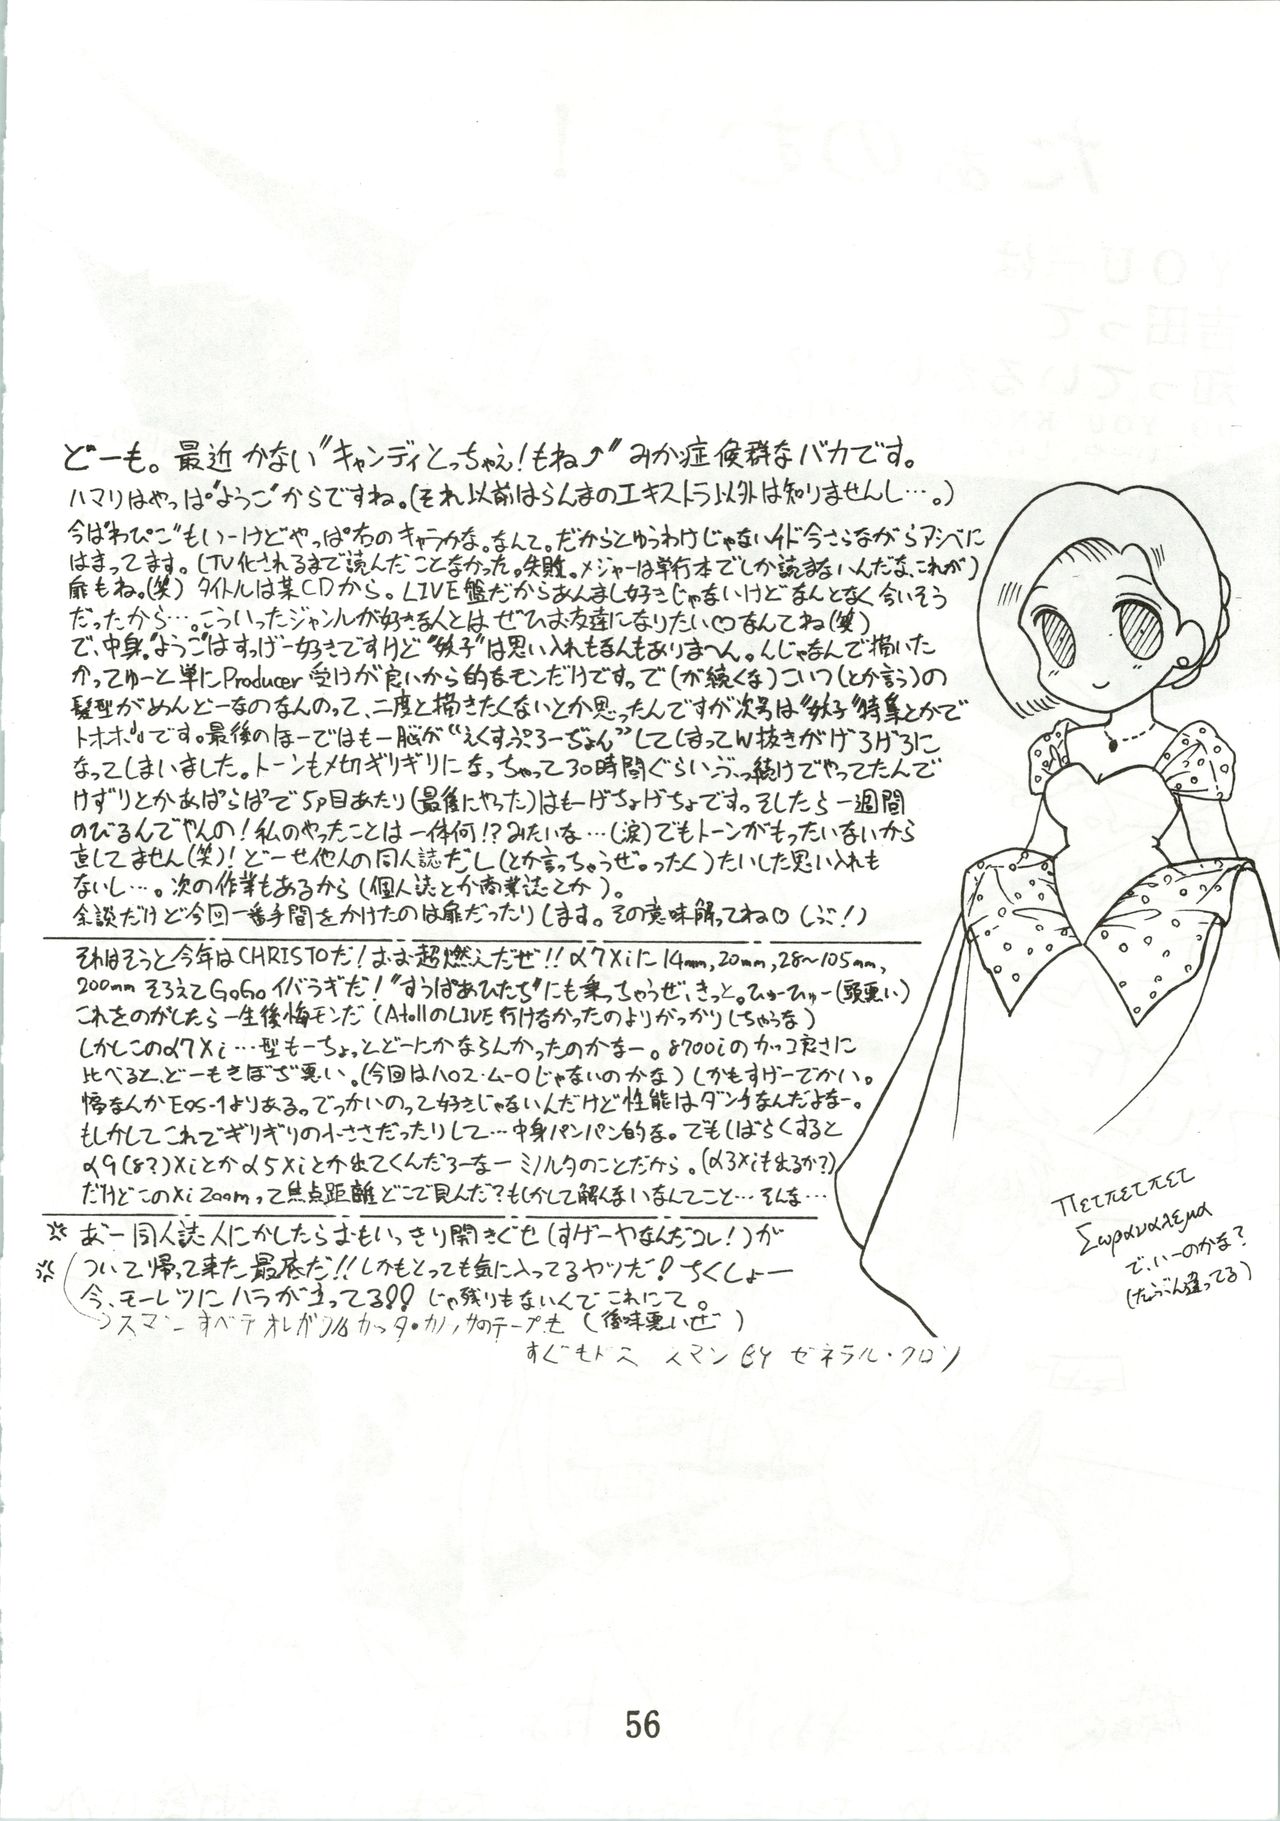 どーも。最近かない"キャンディとっちゃえ!もね⤴"みか症候群なバカです。
ハマリはやっぱ"ようこ"からですね。(それ以前はらんまのエキストラ以外は知りませんし…。)
今ば"わぴこ"もいーけどやっぱ右のキャラかな。なんて。だからとゆうわけじゃないけど今さらながらアシベに
はまってます。(TV化されるまで読んだことなかった。失敗。メジャーは単行本でしか読まないんだな、これが)
扉もね。(笑) タイトルは某CDから。LIVE盤だからあんまし好きじゃないけどなんとなく今いそう
だったから…。こういったジャンルが好きな人とはぜひお友達になりたい♡なんてね(笑)
で、中身。"ようこ"はすっげー好きですけど"妖子"は思い入れもなんもありませーん。んじゃなんで描いた
かってゅーと単にProducer受けが良いから的なモンだけです。って(が続くな)こいつ(とか言う)の
髪型がめんどーなのなんのって、二度と描きたくないとか思ったんですが次号は"妖子"特集とかで
トホホ』です。最後のほーではもー脳が"えくすぷろーぢょん"してしまってW抜きがげろげろに
なってしまいました。トーンも〆切ギリギリになっちゃって30時間ぐらいぶっ続けでやってたんで
けずりとかあぱらぱで5p目あたり(最後にやった)はもーげちょげちょです。そしたら一週間
のびるんでやんの!私のやったことは一体何!?みたいな…(涙)でもトーンがもったいないから
直してません(笑)!どーせ他人の同人誌だし(とか言っちゃうぜ。ったく)たいした思い入れも
ないし…。次の作業もあるから(個人誌とか商業誌とか)。
余談だけど今回一番手間をかけたのは扉だったりします。その意味解ってね♡(しぶ!)
それはそうと今年はCHRISTOだ!おお超燃えだぜ!!α7Xiに14mm,20mm,28~105mm,
200mmそろえてGoGoイバラギだ!"すうぱあひたち"にも乗っちゃうぜ、きっと。ひゅーひゅー(頭悪い)
これをのがしたら一生後悔モンだ(AtollのLIVE行けなかったのよりがっかりしちゃうな)
しかしこのα7Xi…型もーちょっとどーにかならんかったのかなー。8700iのカッコ良さに
比べると、どーもきぼぢ悪い。(今回はハロス・ムーロじゃないのかな)しかもすげーでかい。
幅なんかEOS-1よりある。でっかいのって好きじゃないんだけど性能はダンチなんだよなー。
もしかしてこれでギリギリの小ささだったりして…中身パンパン的な。でもしばらくすると
α9(8?)Xiとかα5Xiとか出てくんだろーなーミノルタのことだから。(α3Xiも出るか?)
だけどこのXi Zoomって焦点距離どこで見んだ?もしかして解んないなんてこと…そんな…
あー同人誌人にかしたらおもいっきり開きぐせ(すげーヤなんだコレ!)が
ついて帰って来た最底だ!!しかもとっても気に入ってるヤツだ!ちくしょー
今、モーレツにハラが立ってる!!じゃ残りもないんでこれにて。
スマン すべテ オレガ カッタ・カノッサのテープも (後味悪いぜ)
すぐもドス スマン BY ゼネラル・クロン
Πετπετπετ
Σωραμαλεμα
で、いーのかな?
(たぶん違ってる)
56